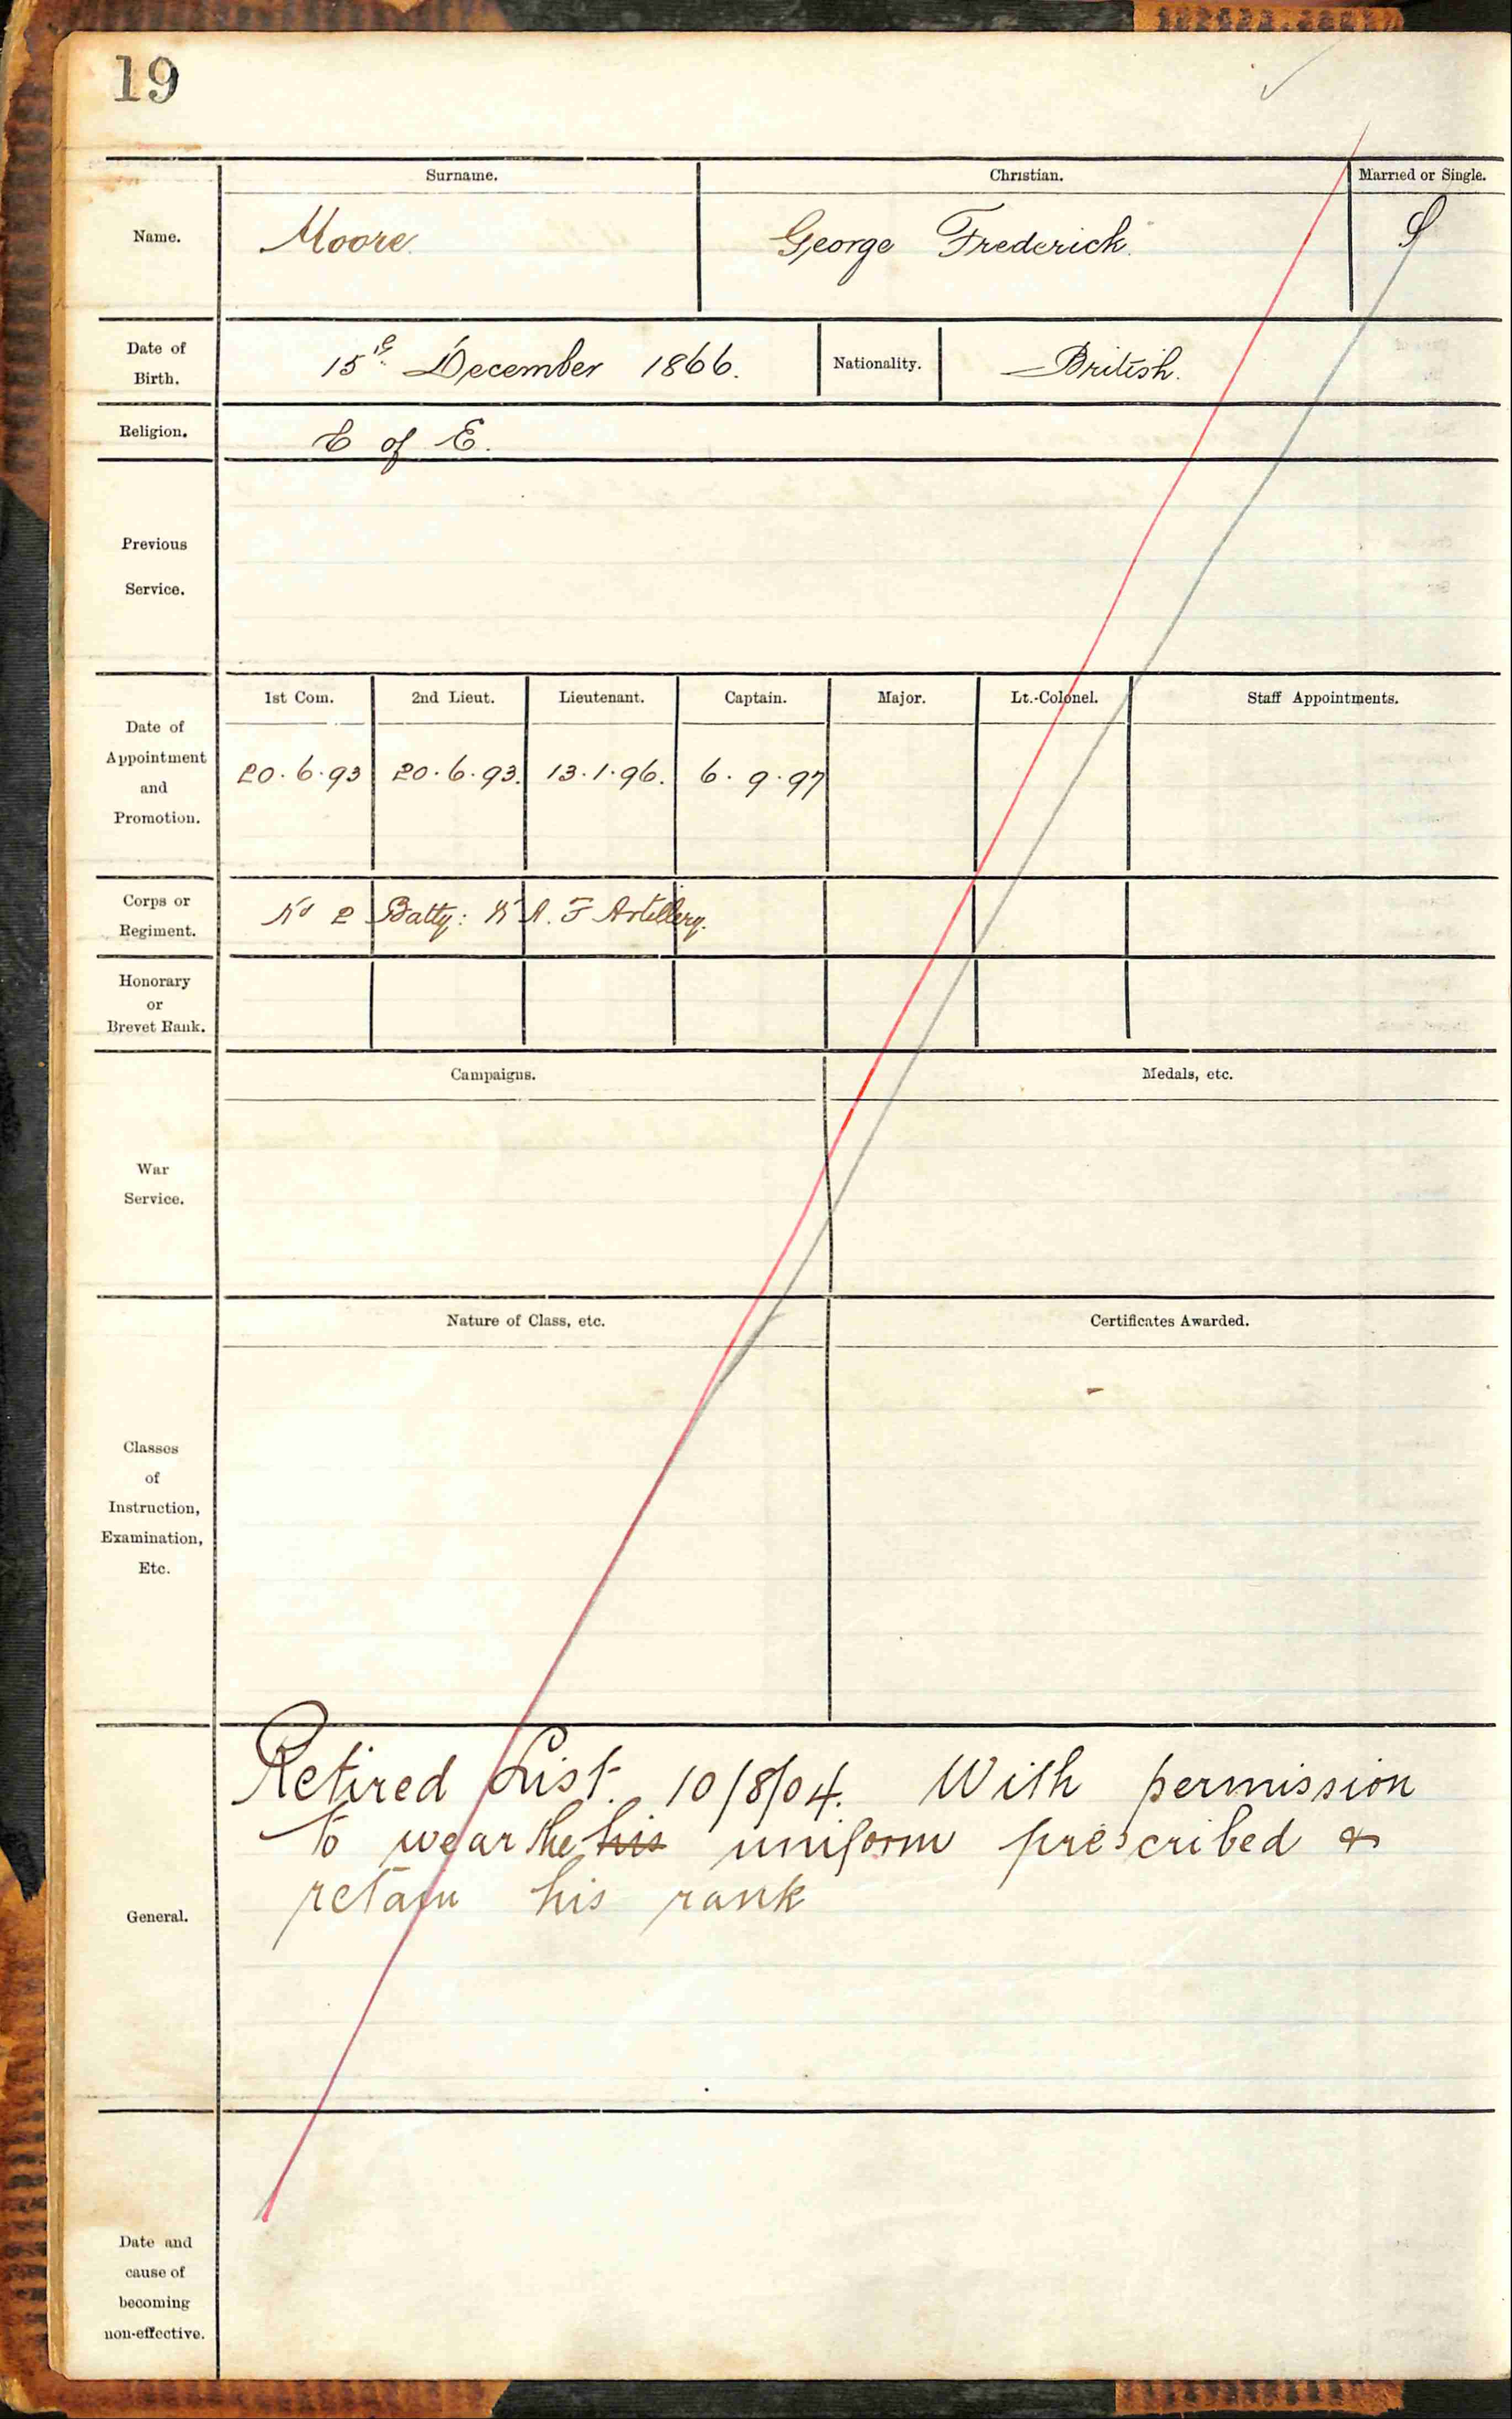 19
Surname. Christian. Married or Single.
Name. Moore. George Frederick. S
Date of Birth. 15th December 1866. Nationality. British.
Religion. C of E.
Previous Service.
1st Com. 2nd Lieut. Lieutenant. Captain. Major. Lt.-Colonel. Staff Appointments.
Date of Appointment and Promotion. 20.6.93 20.6.93. 13.1.96. 6.9.97
Corps or Regiment. No 2 Batty: W A. F Artillery.
Honorary or Brevet Rank.
Campaigns. Medals, etc.
War Service.
Nature of Class, etc. Certificates Awarded.
Classes of Instruction, Examination, Etc.
Retired List. 10/8/04. With permission
to wear the his uniform prescribed &
retain his rank
General.
Date and cause of becoming non-effective.